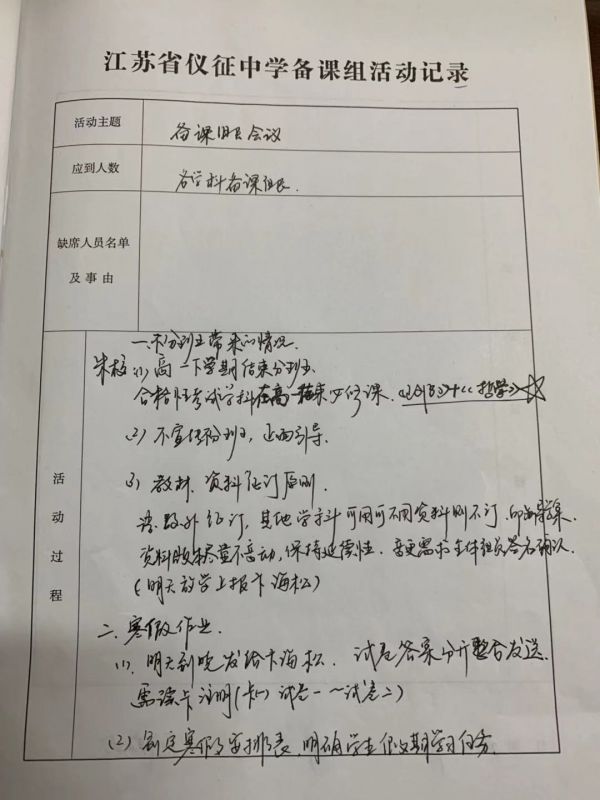 江苏省仪征中学备课组活动记录
活动主题
备课组长会议
应到人数
各学科备课组长.
缺席人员名单
及事由
活动过程
一.不分班带来的情况.
朱校 (1) 高一下学期结束分班.
合格性考试学科在高一结束必修课.《》+《哲学》☆
(2) 不宣传分班, 正面引导.
3) 教材、资料征订原则.
语、数、外征订, 其他学科可用可不用资料则不订.
资料尽量不变动, 保持延续性. 变更需求全体组员签名确认.
(明天放学上报卞海松)
二.寒假作业.
(1). 明天到晚发给卞海松. 试卷答案分开整合发送.
需读卡注明(卡) 试卷一~试卷二)
(2) 制定寒假安排表, 明确学生假期学习任务.